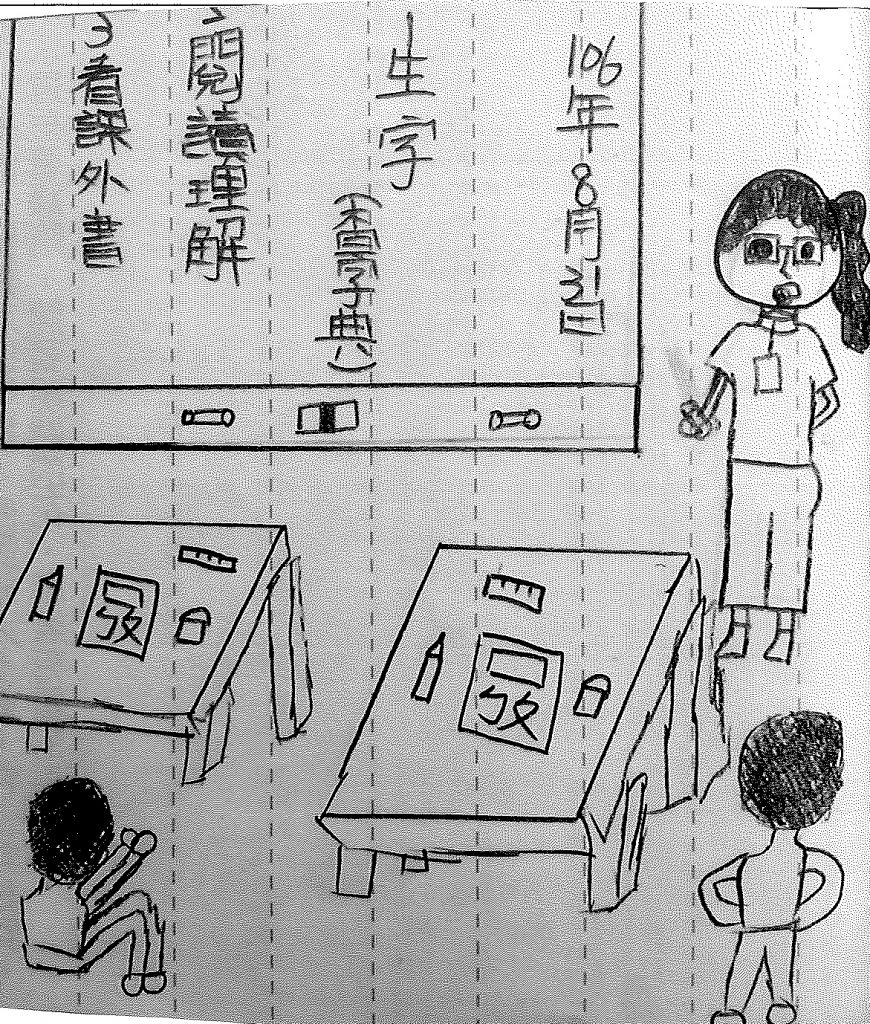 106年8月31日
1生字
(查字典)
2閱讀理解
3看課外書
ㄅㄆ
ㄅㄆ